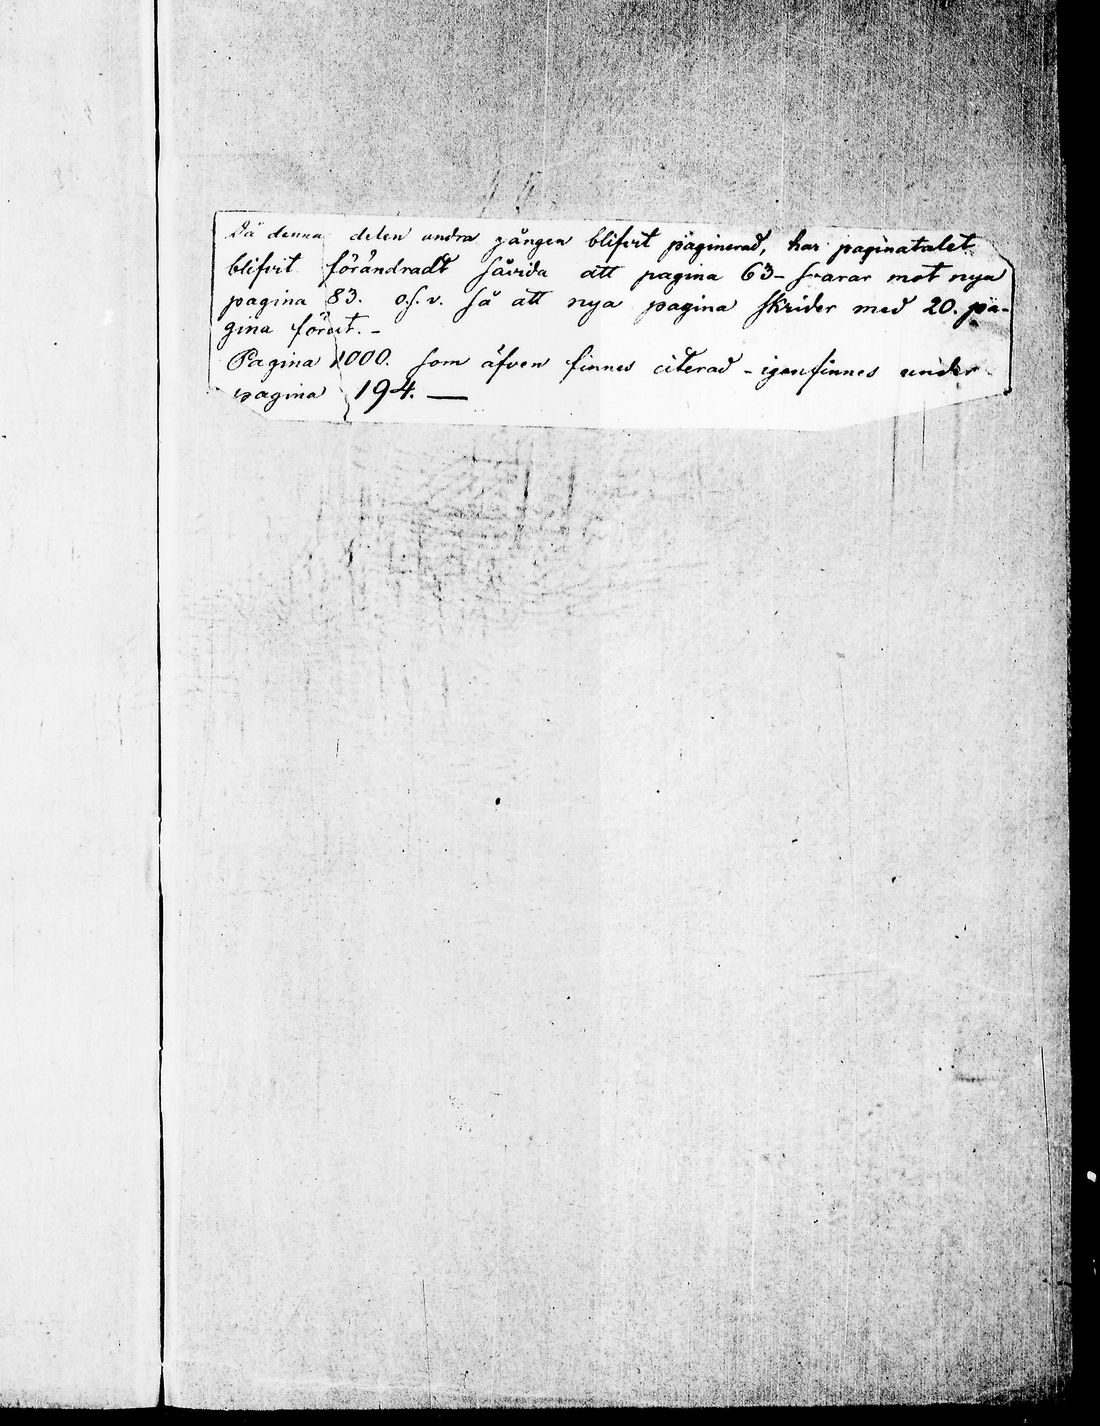 Då denna delen andra gången blifvit paginerad, har paginatalet
blifvit förändradt såvida att pagina 63 - svarar mot nya
pagina 83. o.s.v. så att nya pagina skrider med 20. pa-
gina förut. -
Pagina 1000. som äfven finnes citerad - igenfinnes under
pagina 194. —